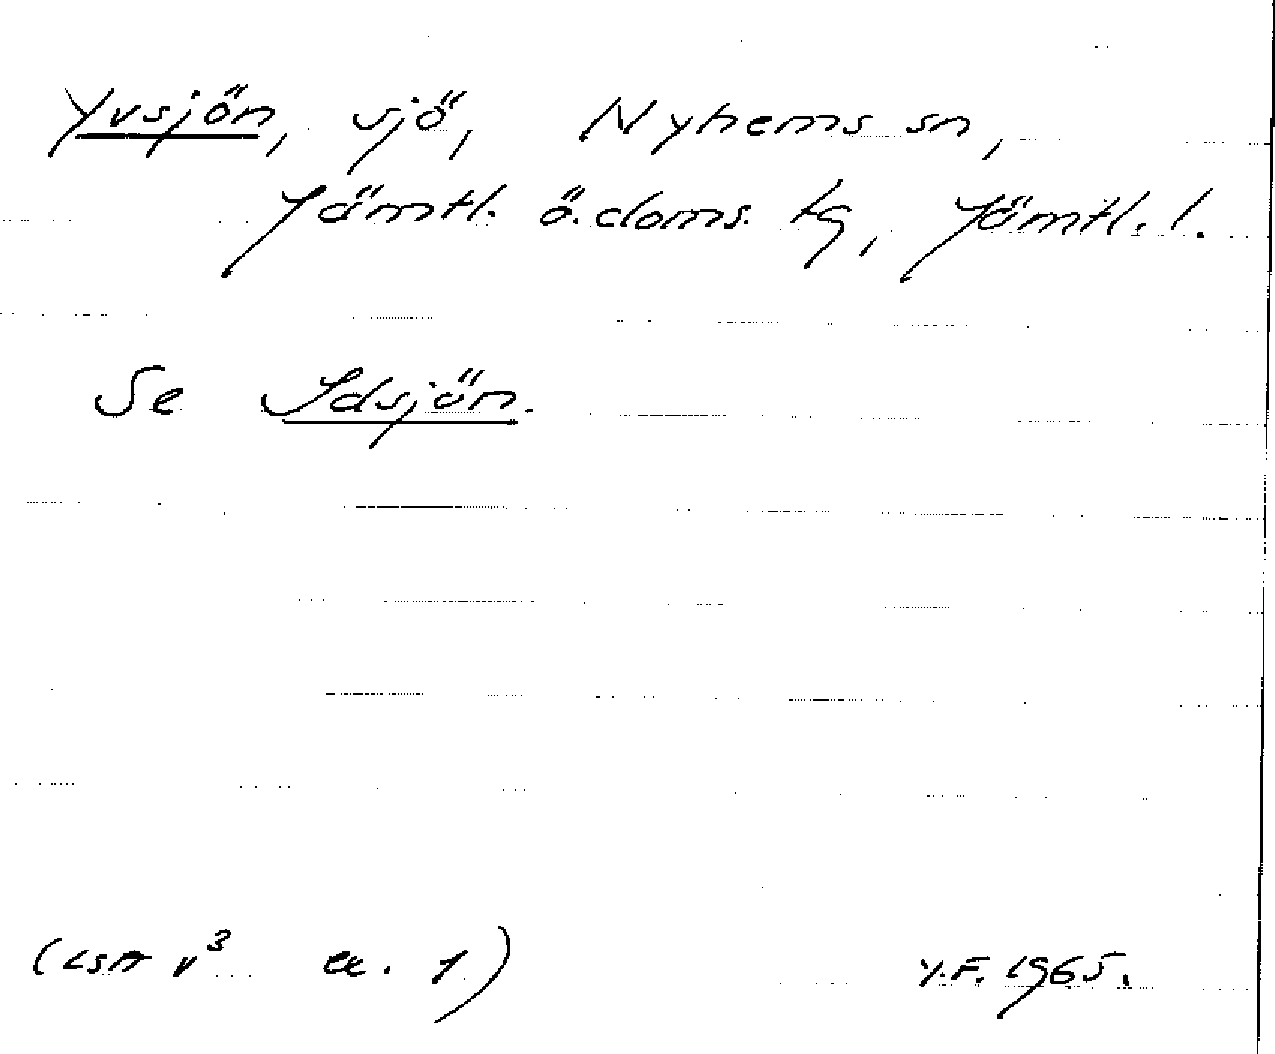 Yvsjön, sjö, Nyhems sn,
Jämtl. ö. doms. tg, Jämtl. l.
Se Idsjön.
(LSA V³ ex. 1) Y.F. 1965.